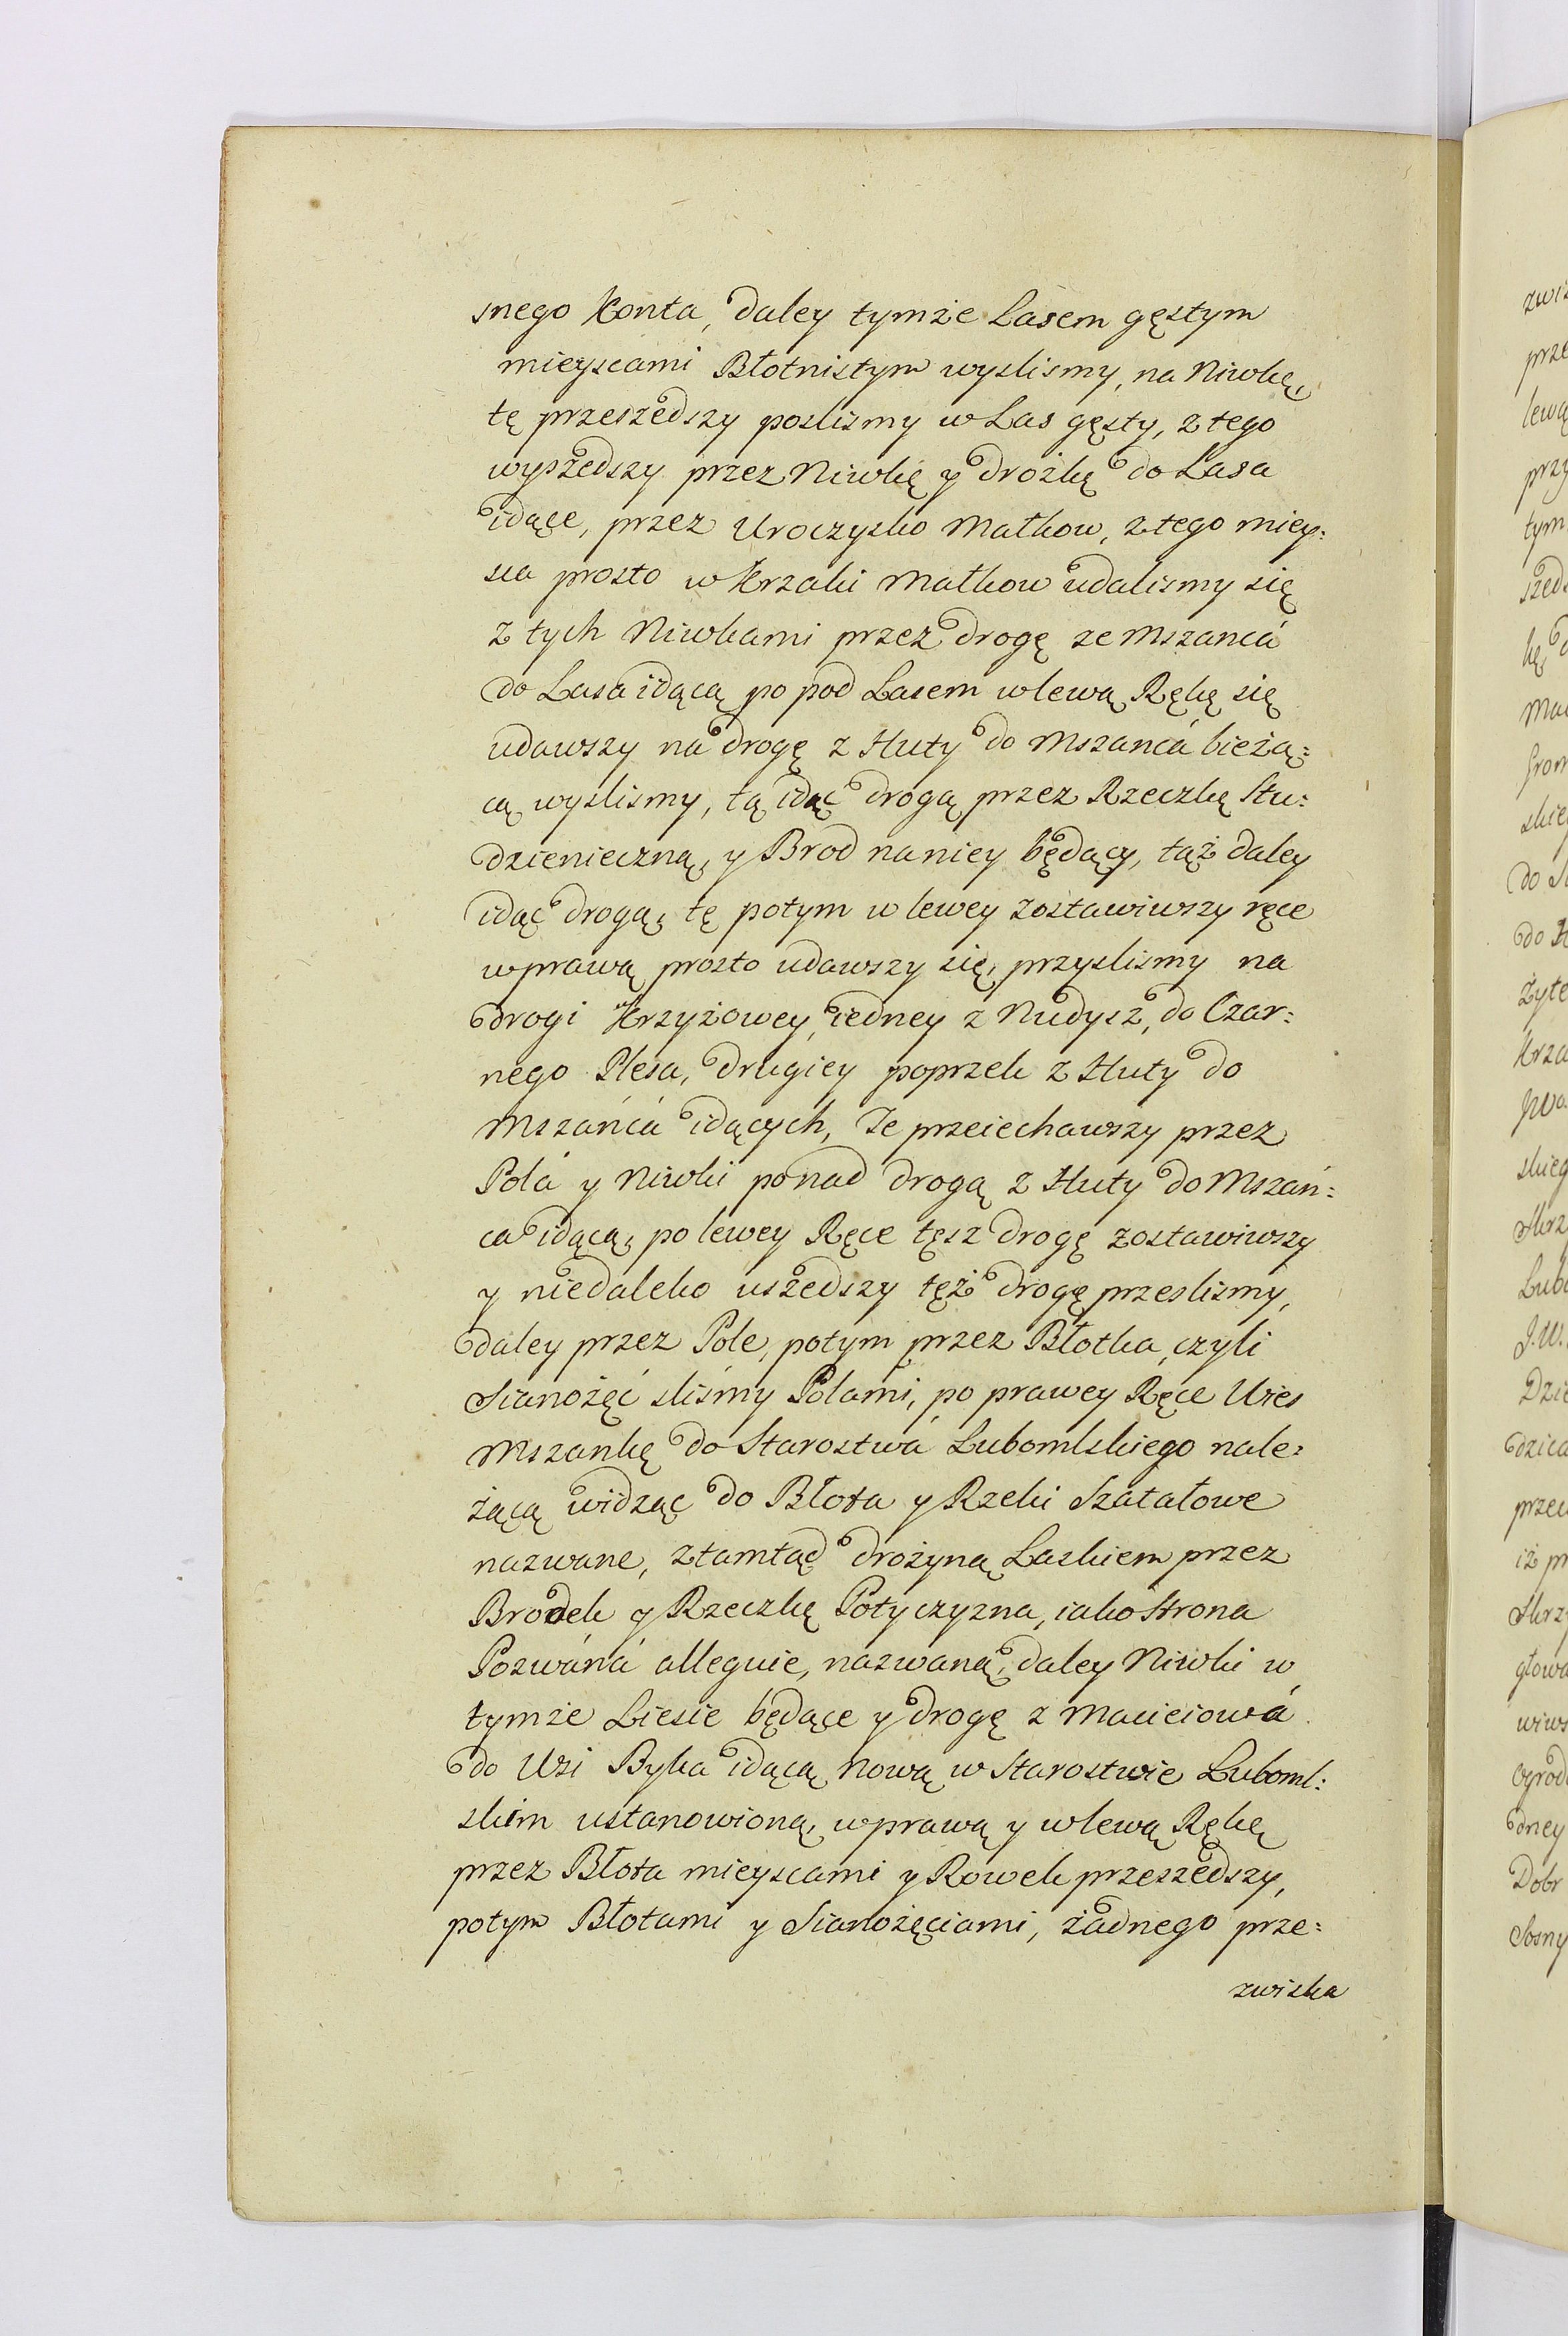 snego Konta, daley tymże Lasem gęstym
mieyscami Błotnistym wyslismy, na Niwkę,
tę przeszedszy poslismy w Las gęsty, z tego
wyszedszy przez Niwkę y drożkę do Lasa
idące, przez Uroczysko Matkow, z tego miey:
sca prosto w Krzaki Matkow udalismy się
z tych Niwkami przez drogę ze Mszańcá
do Lasa idącą po pod Lasem w lewą Rękę się
udawszy na drogę z Huty do Mszańcá bieżą:
cą wyslismy, tą idąc drogą przez Rzeczkę Stu:
dzienieczną, y Brod na niey będący, tąż daley
idąc drogą, tę potym w lewey zostawiwszy ręce
w prawą prosto udawszy się, przyslismy na
drogi Krzyżowey, iedney z Nudysz, do Czar:
nego Plesa, drugiey poprzek z Huty do
Mszańcá idących, Te przeiechawszy przez
Polá y Niwki ponad drogą z Huty do Mszań:
ca idącą, po lewey Ręce tęsz drogę zostawiwszy
y niedaleko uszedszy tęż drogę przeslismy,
daley przez Pole, potym przez Błotka, czyli
Sianożęć slismy Polami, po prawey Ręce Wies
Mszankę do Starostwá Lubomlskiego nale:
żącą widząc do Błota y Rzeki Szatałowe
nazwane, ztamtąd drożyną Laskiem przez
Brodek y Rzeczkę Potyczyzna, iako Strona
Pozwáná alleguie, nazwaną, daley Niwki w
tymże Liesie będące y drogę z Macieiowá
do Wsi Byka idącą Nową w Starostwie Luboml:
skim ustanowioną, w prawą y w lewą Rękę
przez Błota mieyscami y Rowek przeszedszy,
potym Błotami y Sianożęciami, żadnego prze:
zwiska